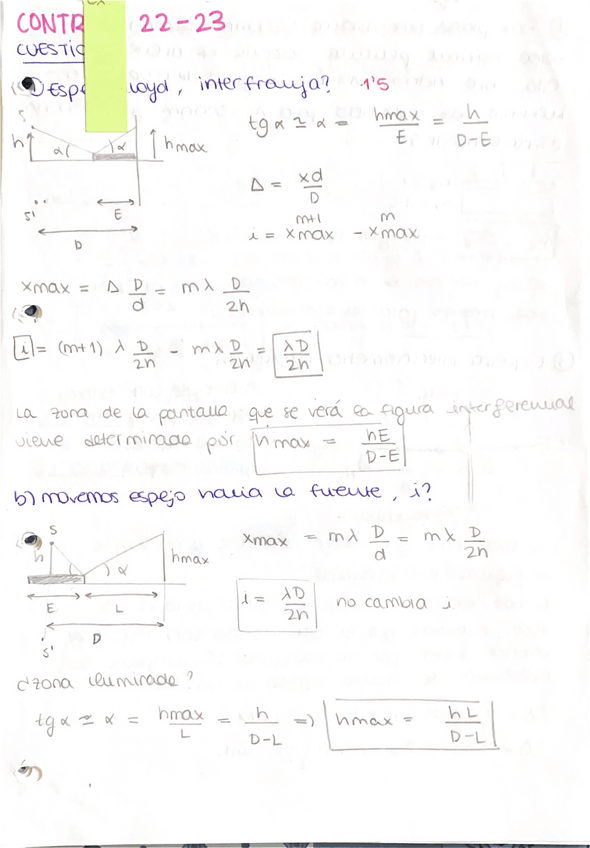 CONTR 22-23
CUESTIO
a) Espe Lloyd, interfranja? 1'5
S
h α α hmax
S' E
D
tg α ≃ α = hmax/E = h/D-E
Δ = xd/D
i = x^{m+1}max - x^{m}max
xmax = Δ D/d = mλ D/2h
i = (m+1) λ D/2h - mλ D/2h = λD/2h
La zona de la pantalla que se verá la figura interferencial
viene determinada por hmax = hE/D-E
b) movemos espejo hacia la fuente, i?
S
h α hmax
E L
S' D
xmax = mλ D/d = mλ D/2h
i = λD/2h no cambia i
¿zona iluminada?
tg α ≃ α = hmax/L = h/D-L => hmax = hL/D-L